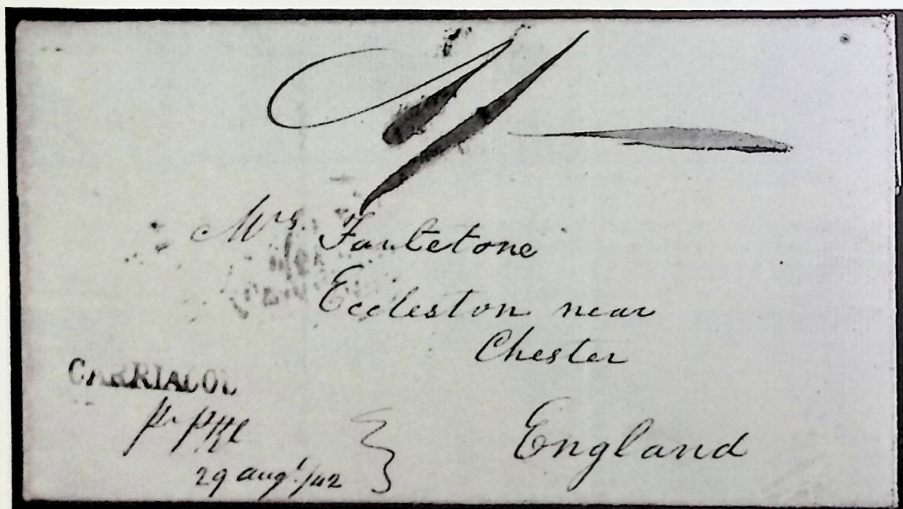 Mrs. Fantetone
Eccleston near
Chester
England
CARRIACOU
pr pkt
29 augt/42